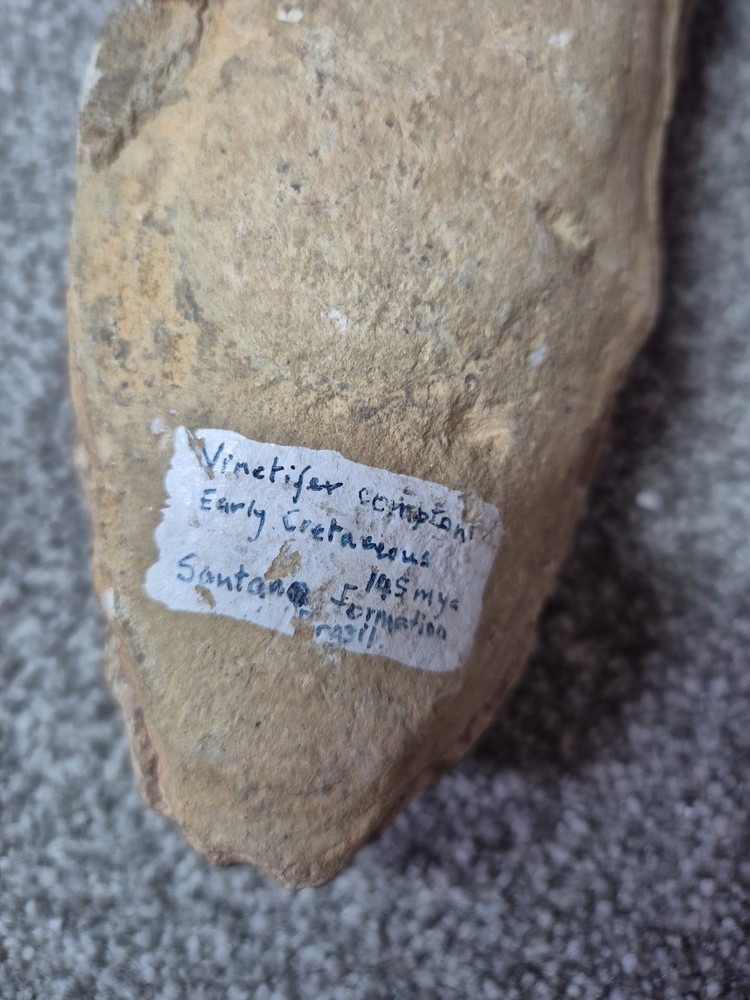 Vinctifer comptoni
Early Cretaceous
145 mya
Santana Formation
Brasil